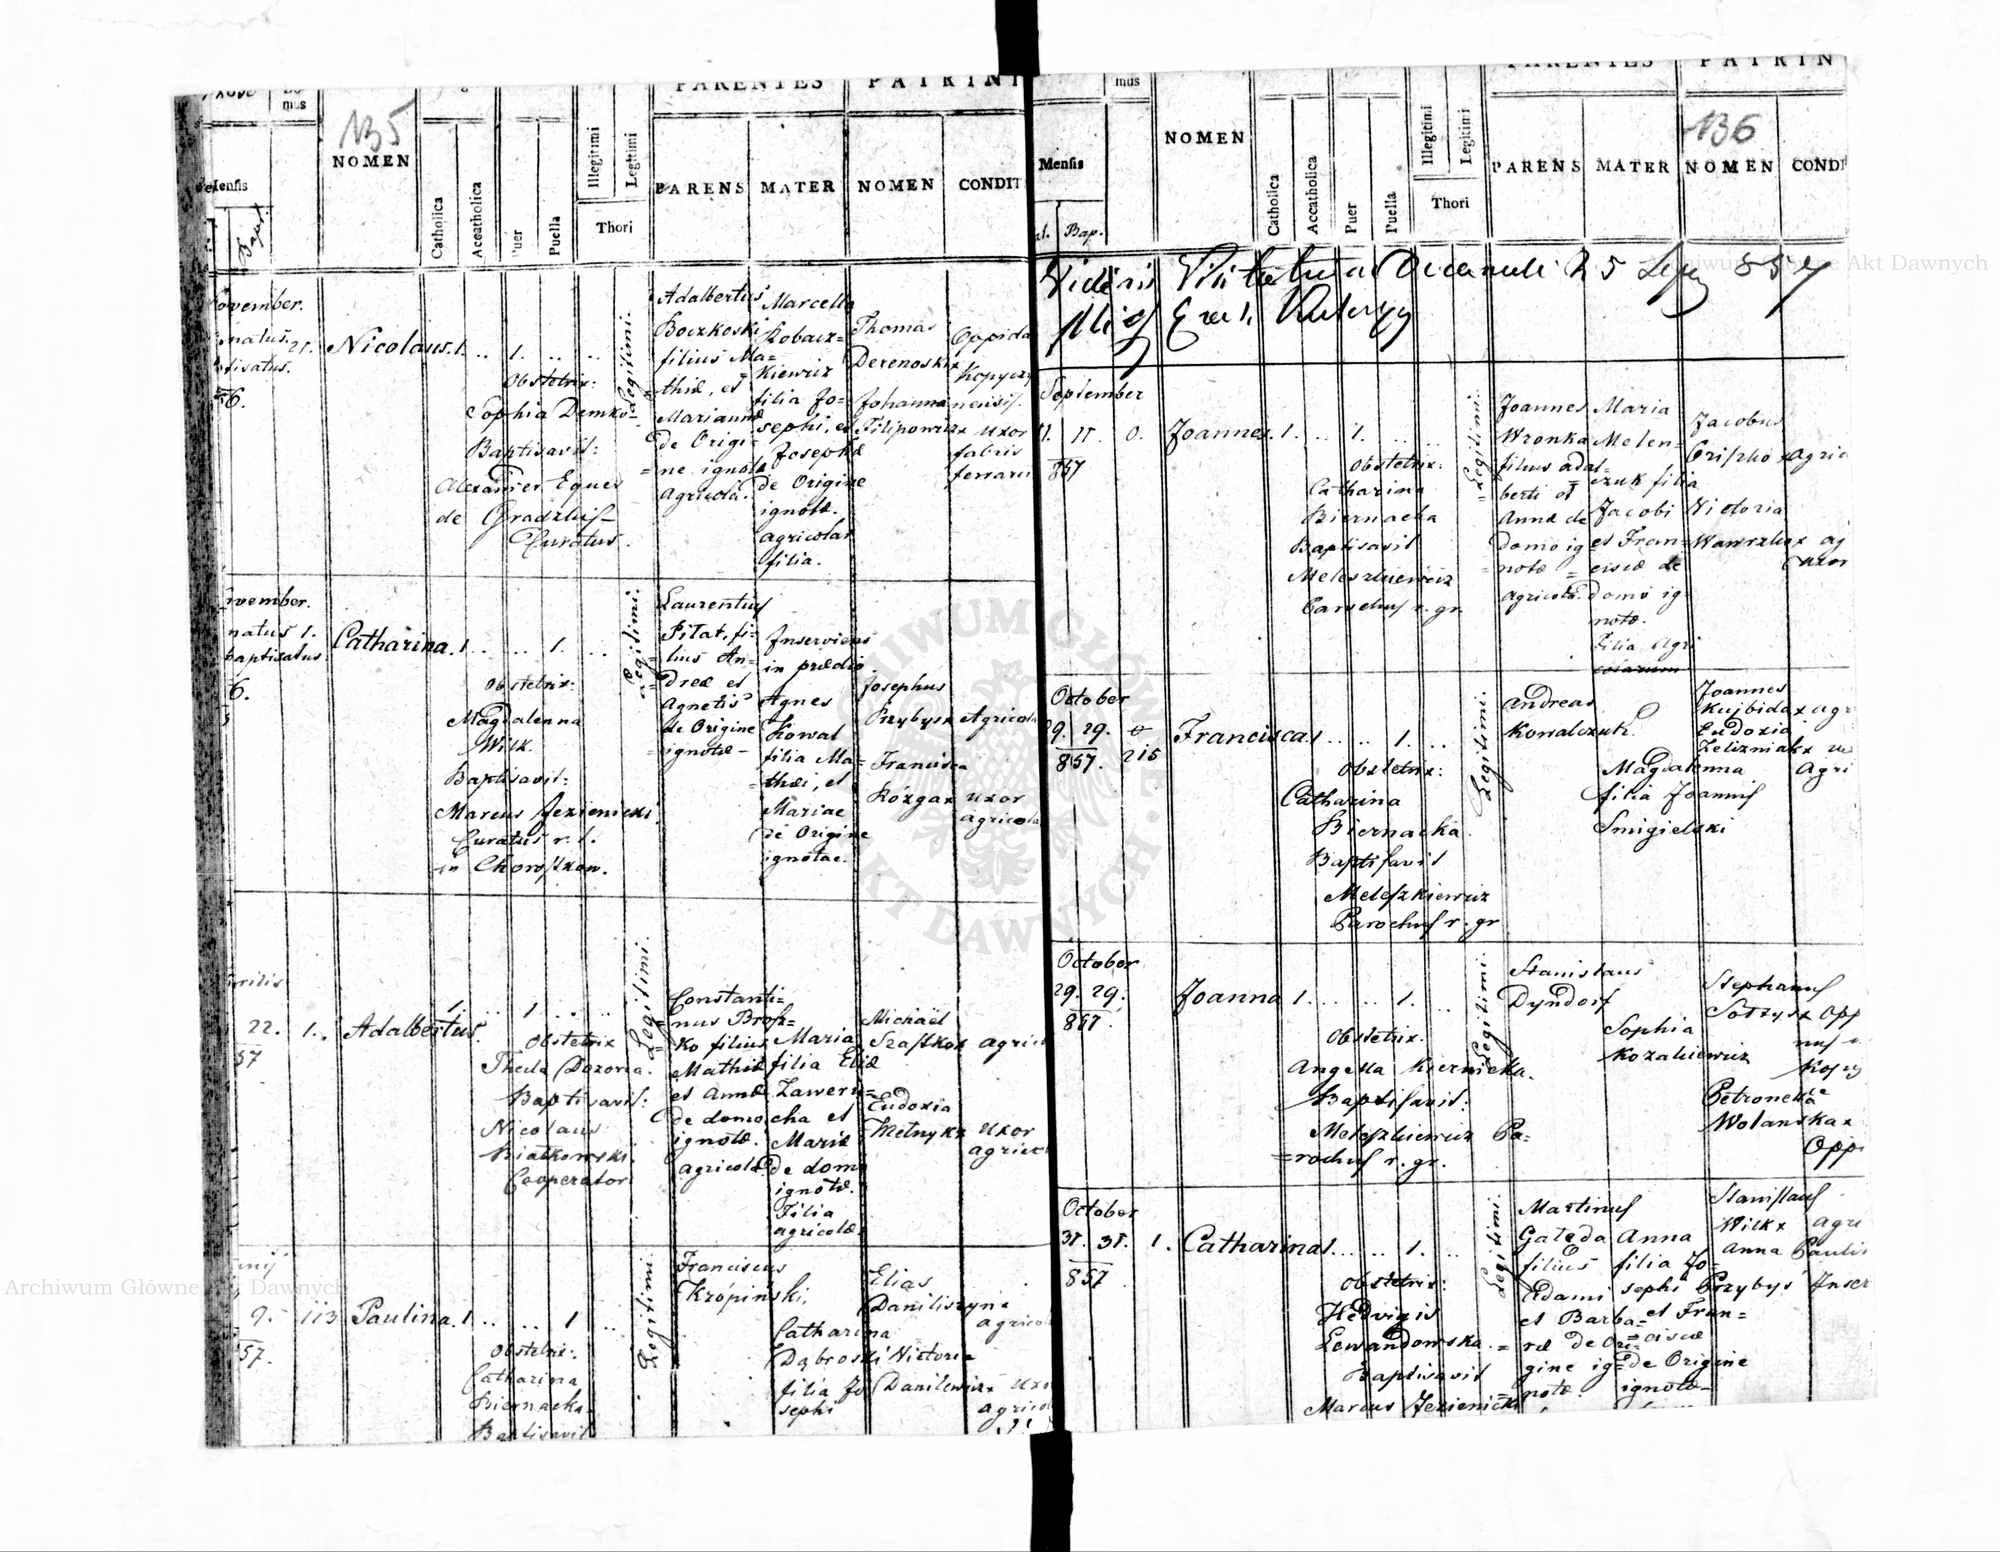 135
mus
NOMEN
Mensis
Bapt.
Catholica
Accatholica
Puer
Puella
Illegitimi
Legitimi
Thori
PARENTES
PATRINI
PARENS
MATER
NOMEN
CONDIT
ovember.
natus. 21.
tisatus.
56.
Nicolaus. 1. .. 1. .. ..
Obstetrix:
Sophia Demko
Baptisavit:
Alexander Eques
de Gradzkis
Curatus.
Legitimi.
Adalbertus
Boczkoski
filius Ma=
=thiæ, et
Mariannæ
de Origi=
=ne ignotæ
Agricola.
Marcella
Kobacz=
Kiewicz
filia Jo=
sephi, et
Josephæ
de Origine
ignotæ.
agricolar
filia.
Thomas
Derenoski x
Johanna
Filipowicz x
Oppida
Kopycz
nensis.
uxor
fabris
ferrari
ovember.
natus 1.
baptisatus
6.
Catharina. 1. .. .. 1. ..
Obstetrix:
Magdalenna
Wilk.
Baptisavit:
Marcus Jezienicki
Curatus r. l.
in Chorostkow.
Legitimi.
Laurentius
Pitat, fi=
=lius An=
=dreæ et
Agnetis
de Origine
=ignotæ=
Inserviens
in prædio.
Agnes
Kowal
filia Ma=
=thæi, et
Mariae
de Origine
ignotae.
Josephus
Przybysz x Agricola
Francisca
Rózga x uxor
agricola
rilis
22. 1.. Adalbertus.
57
1. .. 1. .. ..
Obstetrix
Thecla Dozorca.
Baptisavit:
Nicolaus
Białkowski
Cooperator
Legitimi.
Constanti=
=nus Brosz=
ko filius
Mathiæ
et Annæ
de domo
ignotæ.
agricola.
Maria
filia Eliæ
Zaweru=
cha et
Mariæ
de domo
ignotæ.
Filia
agricolæ.
Michaël
Szastko x agric
Eudoxia
Metnyk x uxor
agricol
nij
9. 113 Paulina. 1 .. .. 1 ..
57.
Obstetrix:
Catharina
Biernacka.
Baptisavit
Legitimi
Franciscus
Krópiński.
Catharina
Dąbroski
filia Jo
sephi
Elias
Daniliszyn x
agricol
Victoria
Danilewicz x uxo
agricol
136
mus
Mensis
at. Bap.
NOMEN
Catholica
Accatholica
Puer
Puella
Illegitimi
Legitimi
Thori
PARENTES
PATRIN
PARENS
MATER
NOMEN
CONDI
September
11. 11. 0. Joannes. 1. .. 1. .. ..
857
Obstetrix:
Catharina
Biernacka
Baptisavit
Meleszkiewicz
Parochus r. gr.
Legitimi.
Joannes
Wronka
filius Adal=
berti et
Annæ de
domo ig
=notæ =
agricola.
Maria
Melen=
=czuk filia
Jacobi
et Fran=
=ciscæ de
domo ig
notæ.
Filia Agri
colarum
Jacobus
Griszko x agric
Victoria
Wawrzko x ag
uxor
October
29. 29.
857. 215
Francisca. 1 .. .. 1. ..
Obstetrix:
Catharina
Biernacka.
Baptisavit
Meleszkiewicz
Parochus r. gr
Legitimi.
Andreas
Kowalczuk.
Magdalenna
filia Joannis
Smigielski
Joannes
Kujbida x agr
Eudoxia
Zelizniak x ux
Agri
October
29. 29.
857.
Joanna 1. .. .. 1. ..
Obstetrix.
Angella Kiernicka.
Baptisavit:
Meleszkiewicz Pa=
=rochus r. gr.
Legitimi.
Stanislaus
Dyndorf
Sophia
Kozakiewicz
Stephanus
Sołtys x opp
Petronella
Wolanska x
Opp
October
31. 31. 1. Catharina 1. .. .. 1. ..
857
Obstetrix:
Hedvigis
Lewandowska.
Baptisavit
Marcus Jezienicki
Legitimi.
Martinus
Gałęda
filius
Adami
et Barba=
=ræ de Ori=
gine ig=
notæ.
Anna
filia Jo=
sephi
et Fran=
=ciscæ
de Origine
ignotæ=
Stanislaus
Wilk x Agri
Anna Pauli
Przybys Inser
Archiwum Główne Akt Dawnych
Archiwum Główne Akt Dawnych
ARCHIWUM GŁÓWNE AKT DAWNYCH